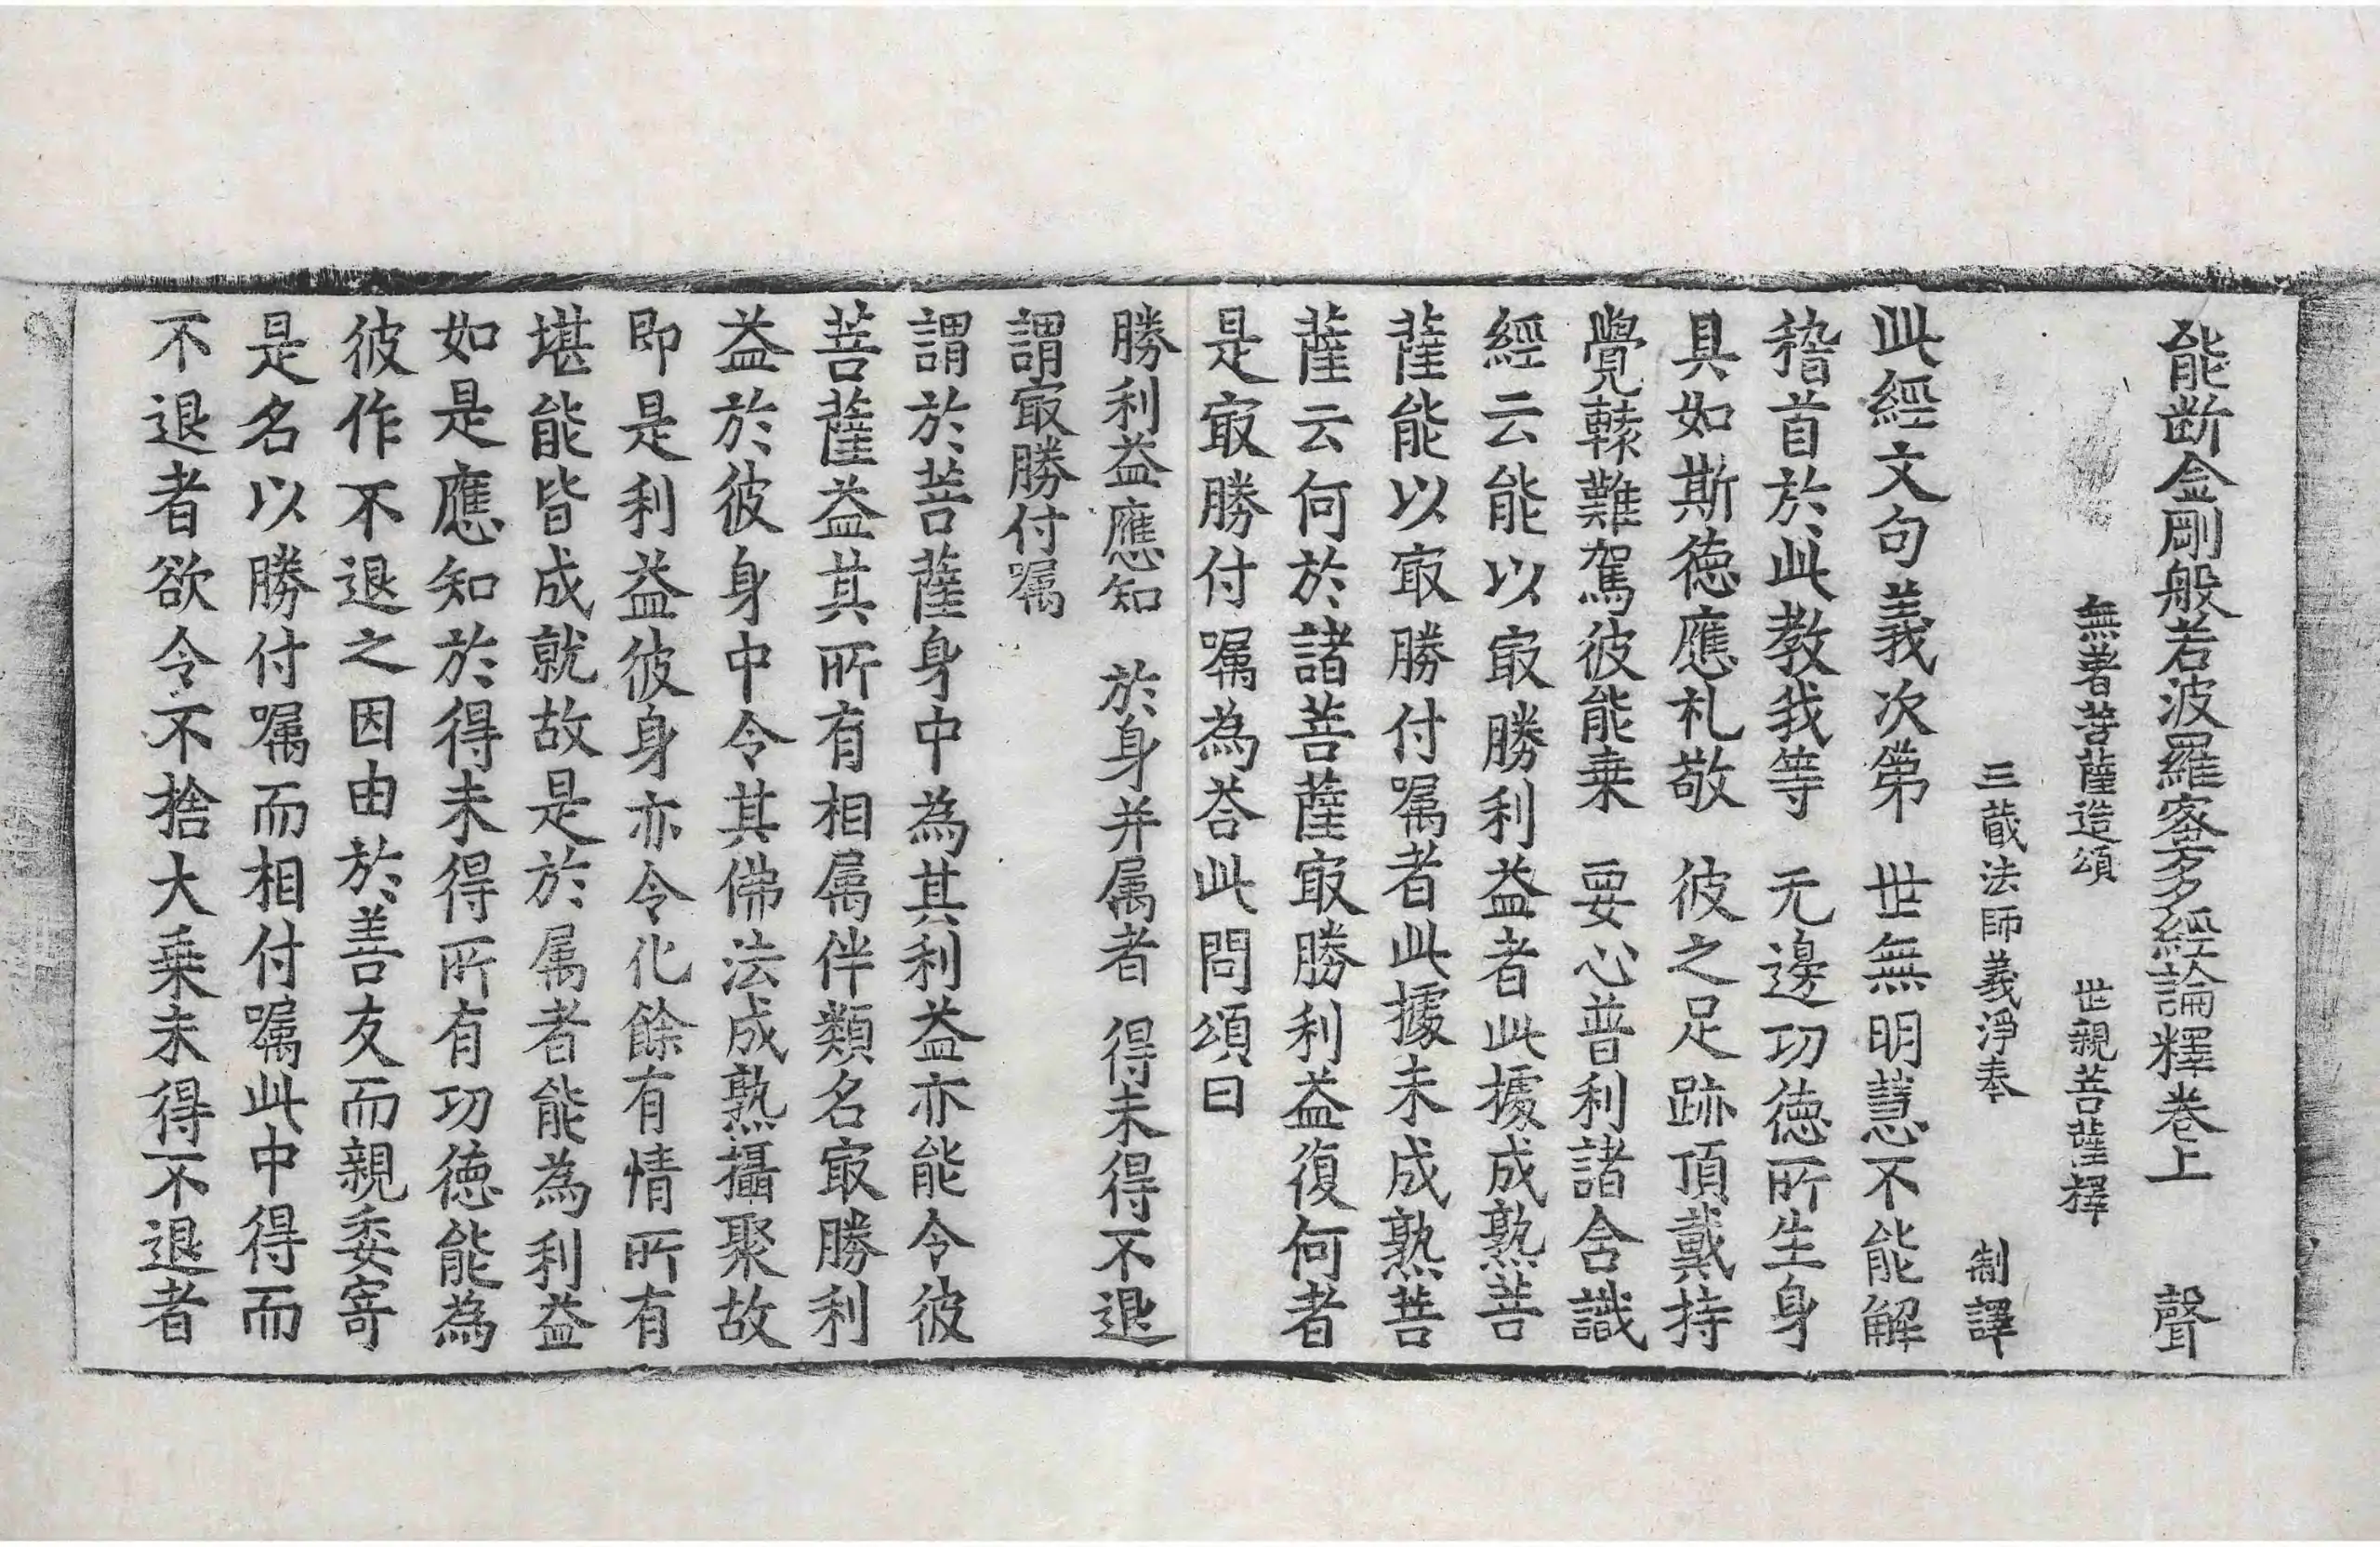 能断金剛般若波羅蜜多經論釋卷上 聲
無著菩薩造頌 世親菩薩釋
三蔵法師義淨奉 制譯
此經文句義次第 世無明慧不能解
稽首於此教我等 无邊功徳所生身
具如斯徳應礼敬 彼之足跡頂戴持
覺轅難駕彼能乗 要心普利諸含識
經云能以㝡勝利益者此據成熟菩
薩能以㝡勝付嘱者此據未成熟菩
薩云何於諸菩薩㝡勝利益復何者
是㝡勝付嘱為荅此問頌曰
勝利益應知 於身并属者 得未得不退
謂㝡勝付嘱
謂於菩薩身中為其利益亦能令彼
菩薩益其所有相属伴類名㝡勝利
益於彼身中令其佛法成熟攝聚故
即是利益彼身亦令化餘有情所有
堪能皆成就故是於属者能為利益
如是應知於得未得所有功徳能為
彼作不退之因由於善友而親委寄
是名以勝付嘱而相付嘱此中得而
不退者欲令不捨大乗未得不退者